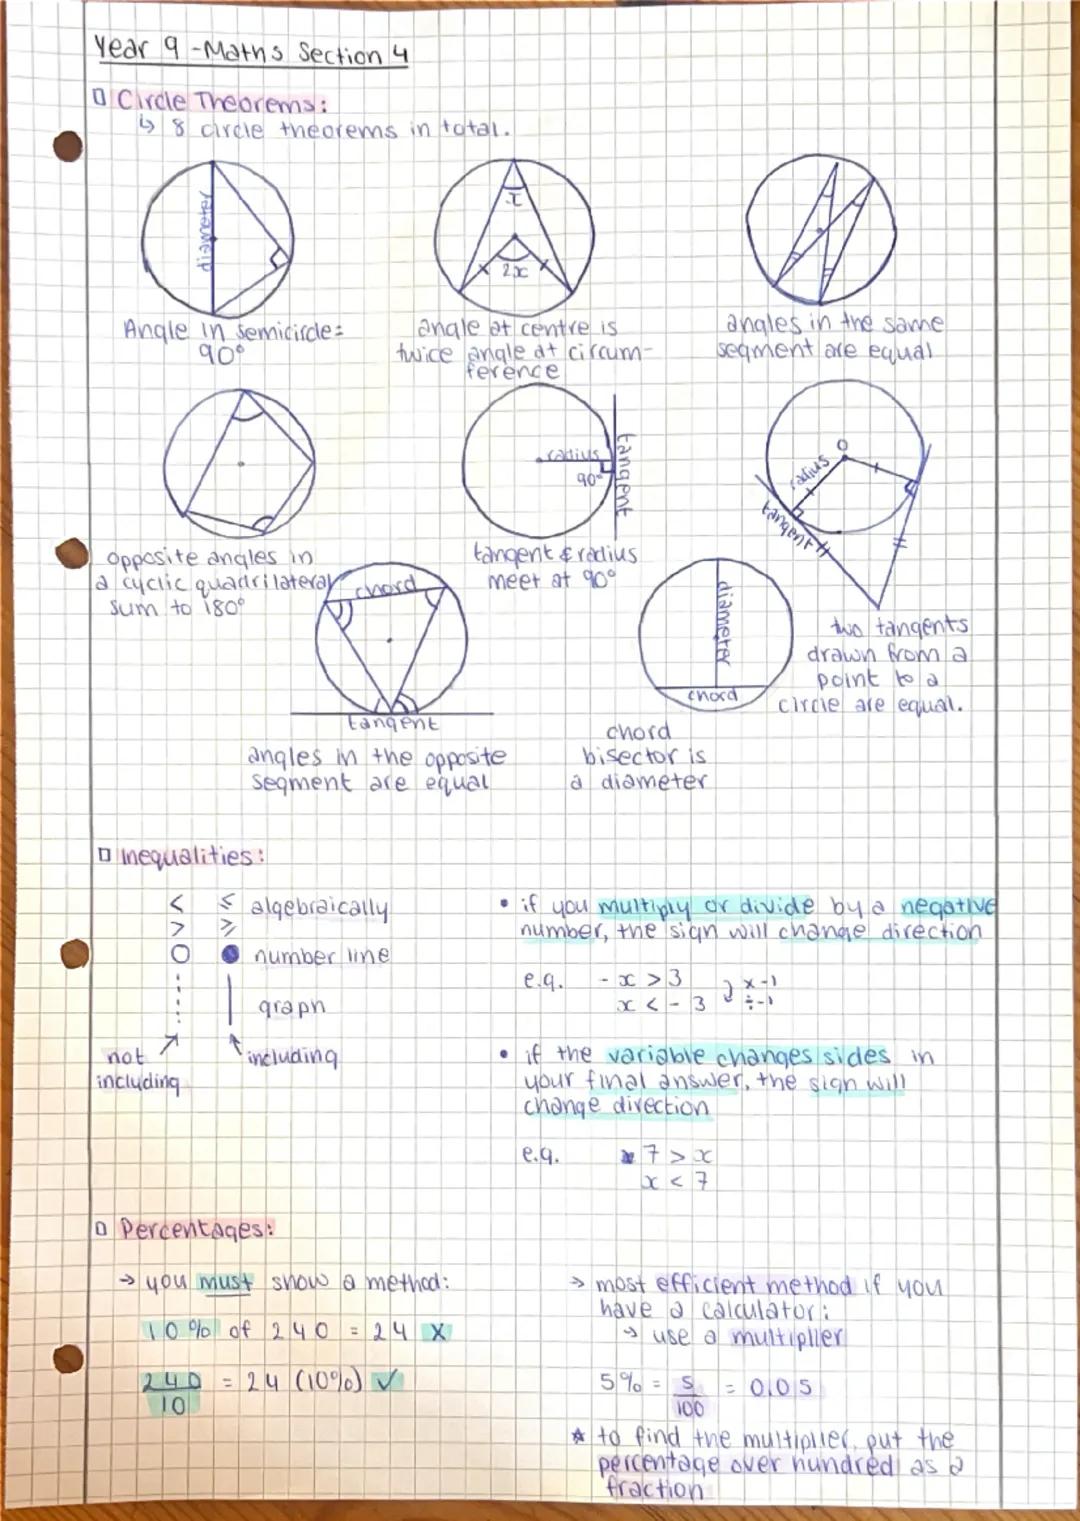 Year 9 - Maths Section 4
Circle Theorems:
↳ 8 circle theorems in total.
diameter
x
2x
Angle in semicircle =
90°
angle at centre is
twice angle at circum-
ference
angles in the same
segment are equal
radius
90°
tangent
O
radius
tangent
opposite angles in
a cyclic quadrilateral
sum to 180°
tangent & radius
meet at 90°
two tangents
drawn from a
point to a
circle are equal.
chord
tangent
angles in the opposite
segment are equal
diameter
chord
chord
bisector is
a diameter
Inequalities:
< ≤ algebraically
> ≥
○ ● number line
graph
not
including
including
• if you multiply or divide by a negative
number, the sign will change direction
e.g. -x > 3
x < -3
x -1
÷ -1
• if the variable changes sides in
your final answer, the sign will
change direction
e.g. 7 > x
x < 7
Percentages:
→ you must show a method:
10% of 240 = 24 X
240/10 = 24 (10%) ✓
→ most efficient method if you
have a calculator:
→ use a multiplier
5% = 5/100 = 0.05
* to find the multiplier, put the
percentage over hundred as a
fraction